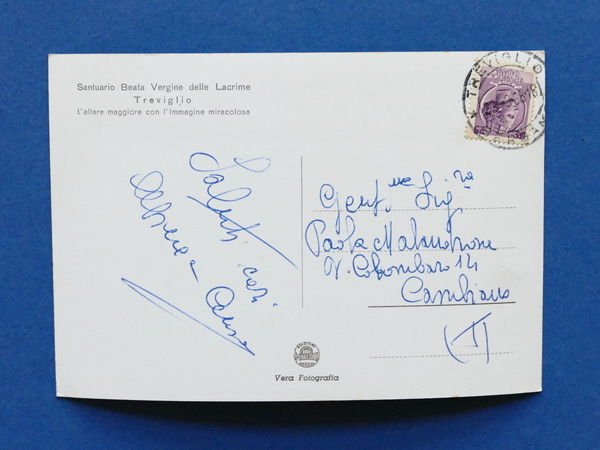 Santuario Beata Vergine delle Lacrime
Treviglio
L'altare maggiore con l'Immagine miracolosa
TREVIGLIO
Saluti cari
Gent.me Sig.na
Paola
V. Colombaro 14
Cambiano
(T)
EDIZIONI
Vera Fotografia